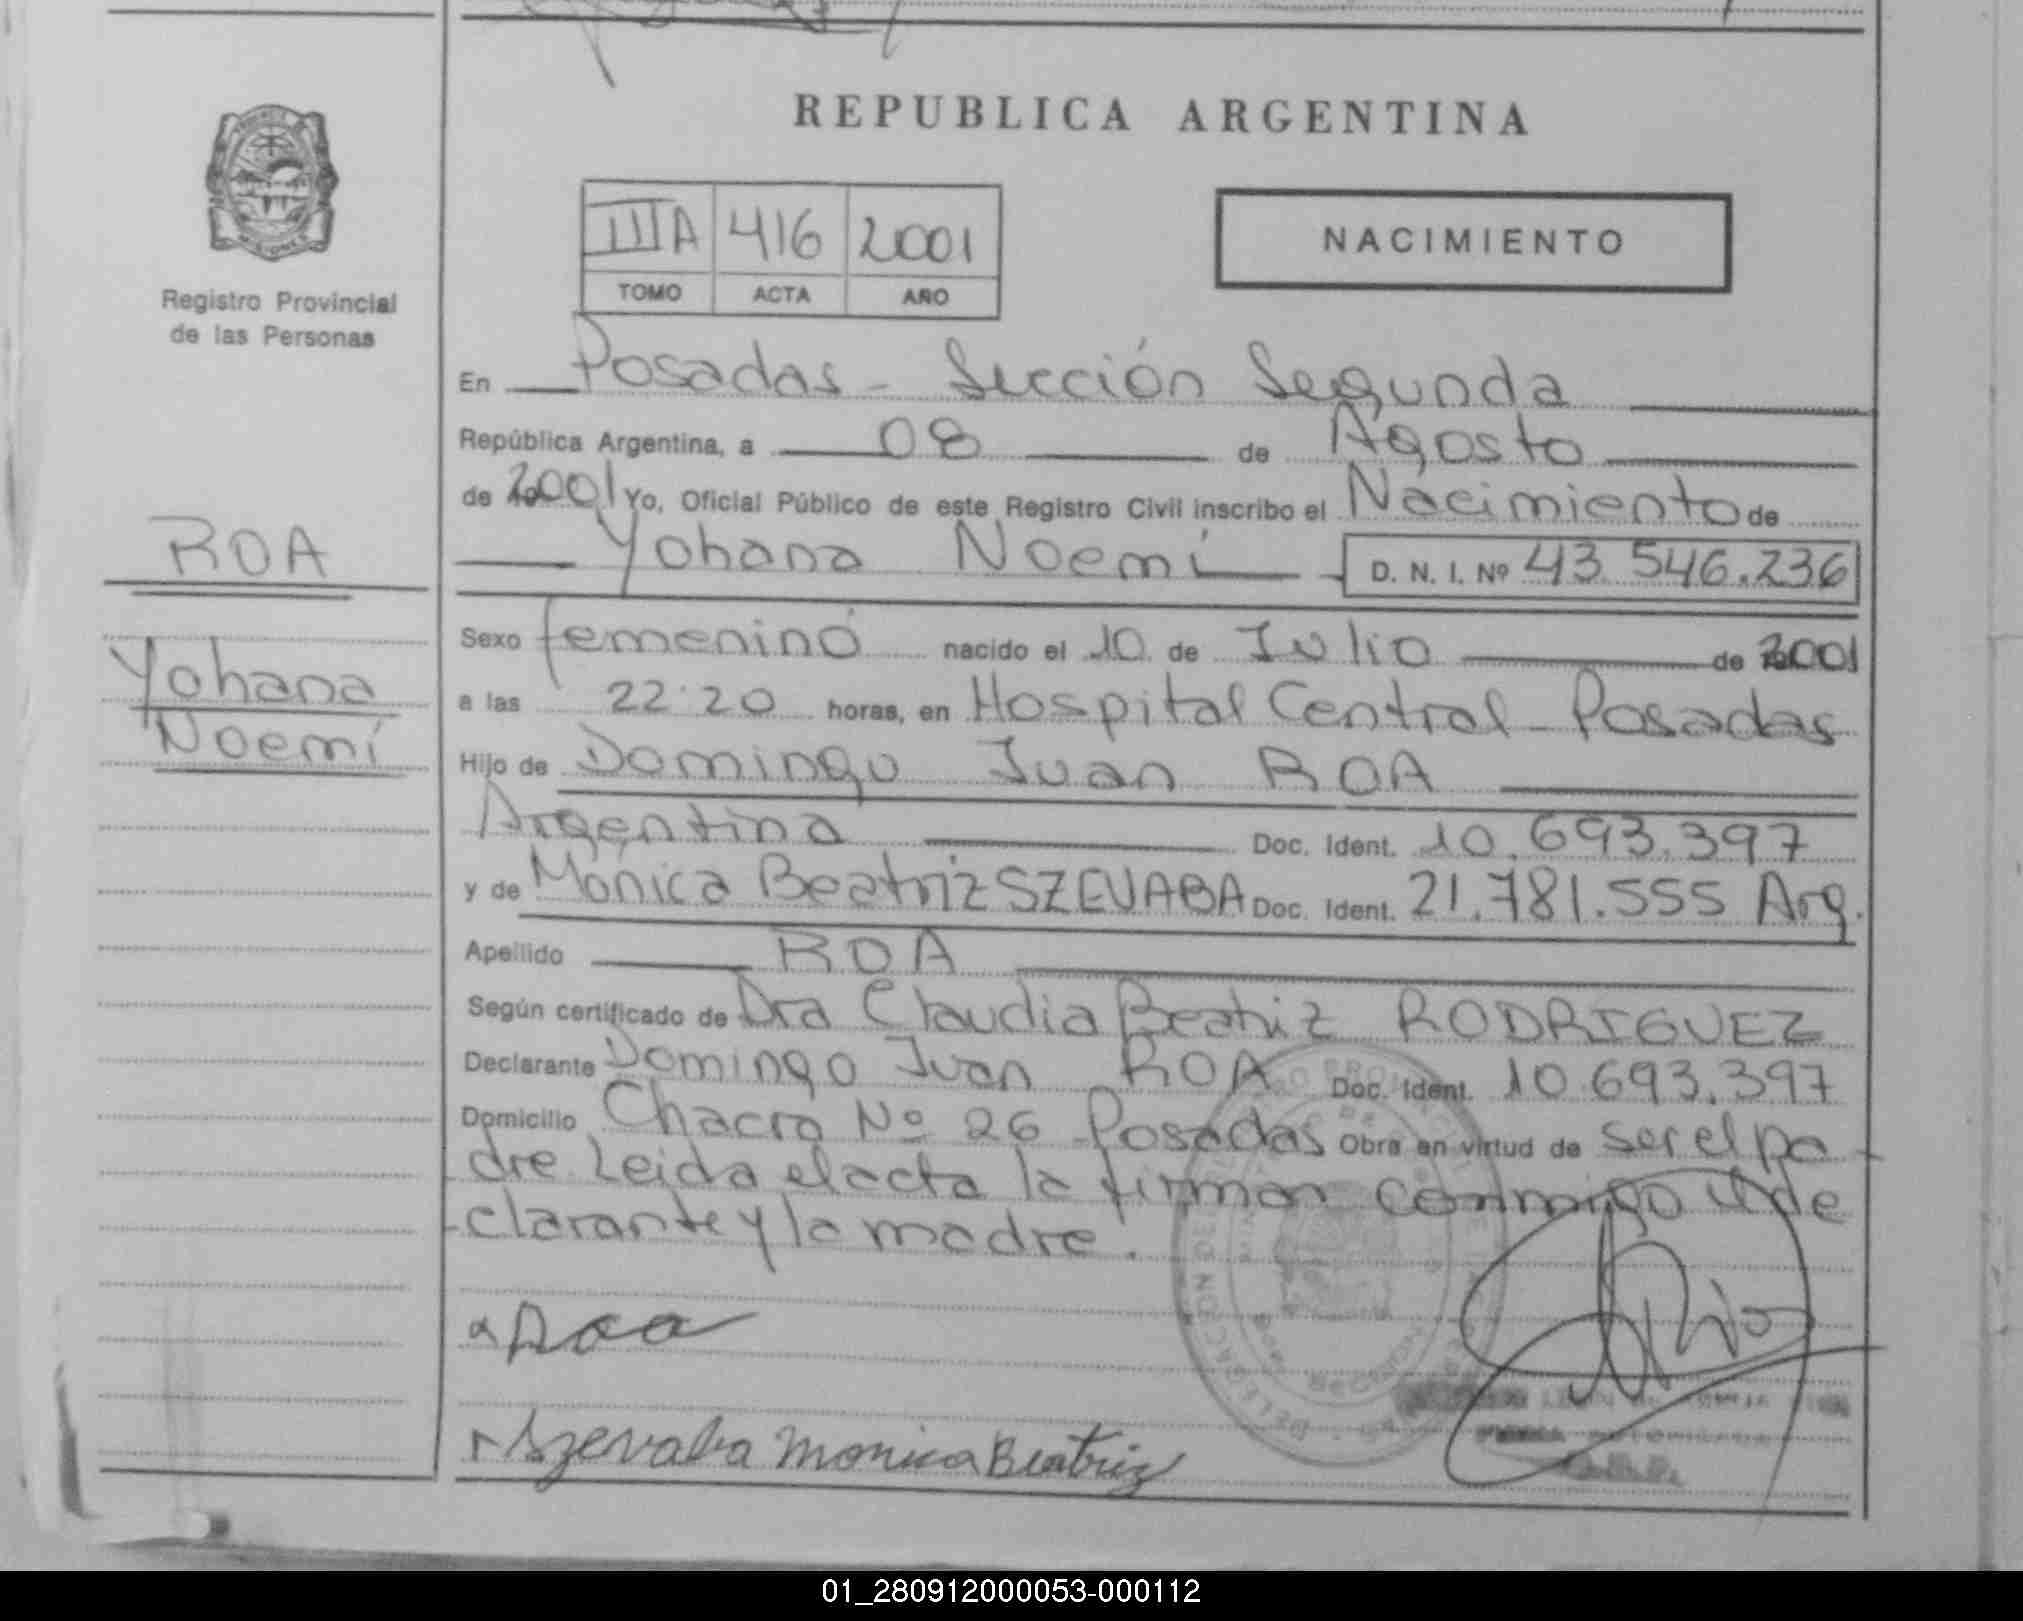 REPUBLICA ARGENTINA
IIIA 416 2001
TOMO ACTA AÑO
NACIMIENTO
Registro Provincial
de las Personas
ROA
Yohana
Noemí
En Posadas - Sección Segunda
República Argentina, a 08 de Agosto
de 2001 Yo, Oficial Público de este Registro Civil inscribo el Nacimiento de
Yohana Noemí D. N. I. Nº 43.546.236
Sexo femenino nacido el 10 de Julio de 2001
a las 22:20 horas, en Hospital Central - Posadas
Hijo de Domingo Juan ROA
Argentina Doc. Ident. 10.693.397
y de Mónica Beatriz SZEVABA Doc. Ident. 21.781.555 Arg.
Apellido ROA
Según certificado de Dra Claudia Beatriz RODRIGUEZ
Declarante Domingo Juan ROA Doc. Ident. 10.693.397
Domicilio Chacra Nº 26 Posadas Obra en virtud de ser el pa-
dre. Leida el acta la firman conmigo el de
clarante y la madre.
Roa
Szevaba Monica Beatriz
01_280912000053-000112